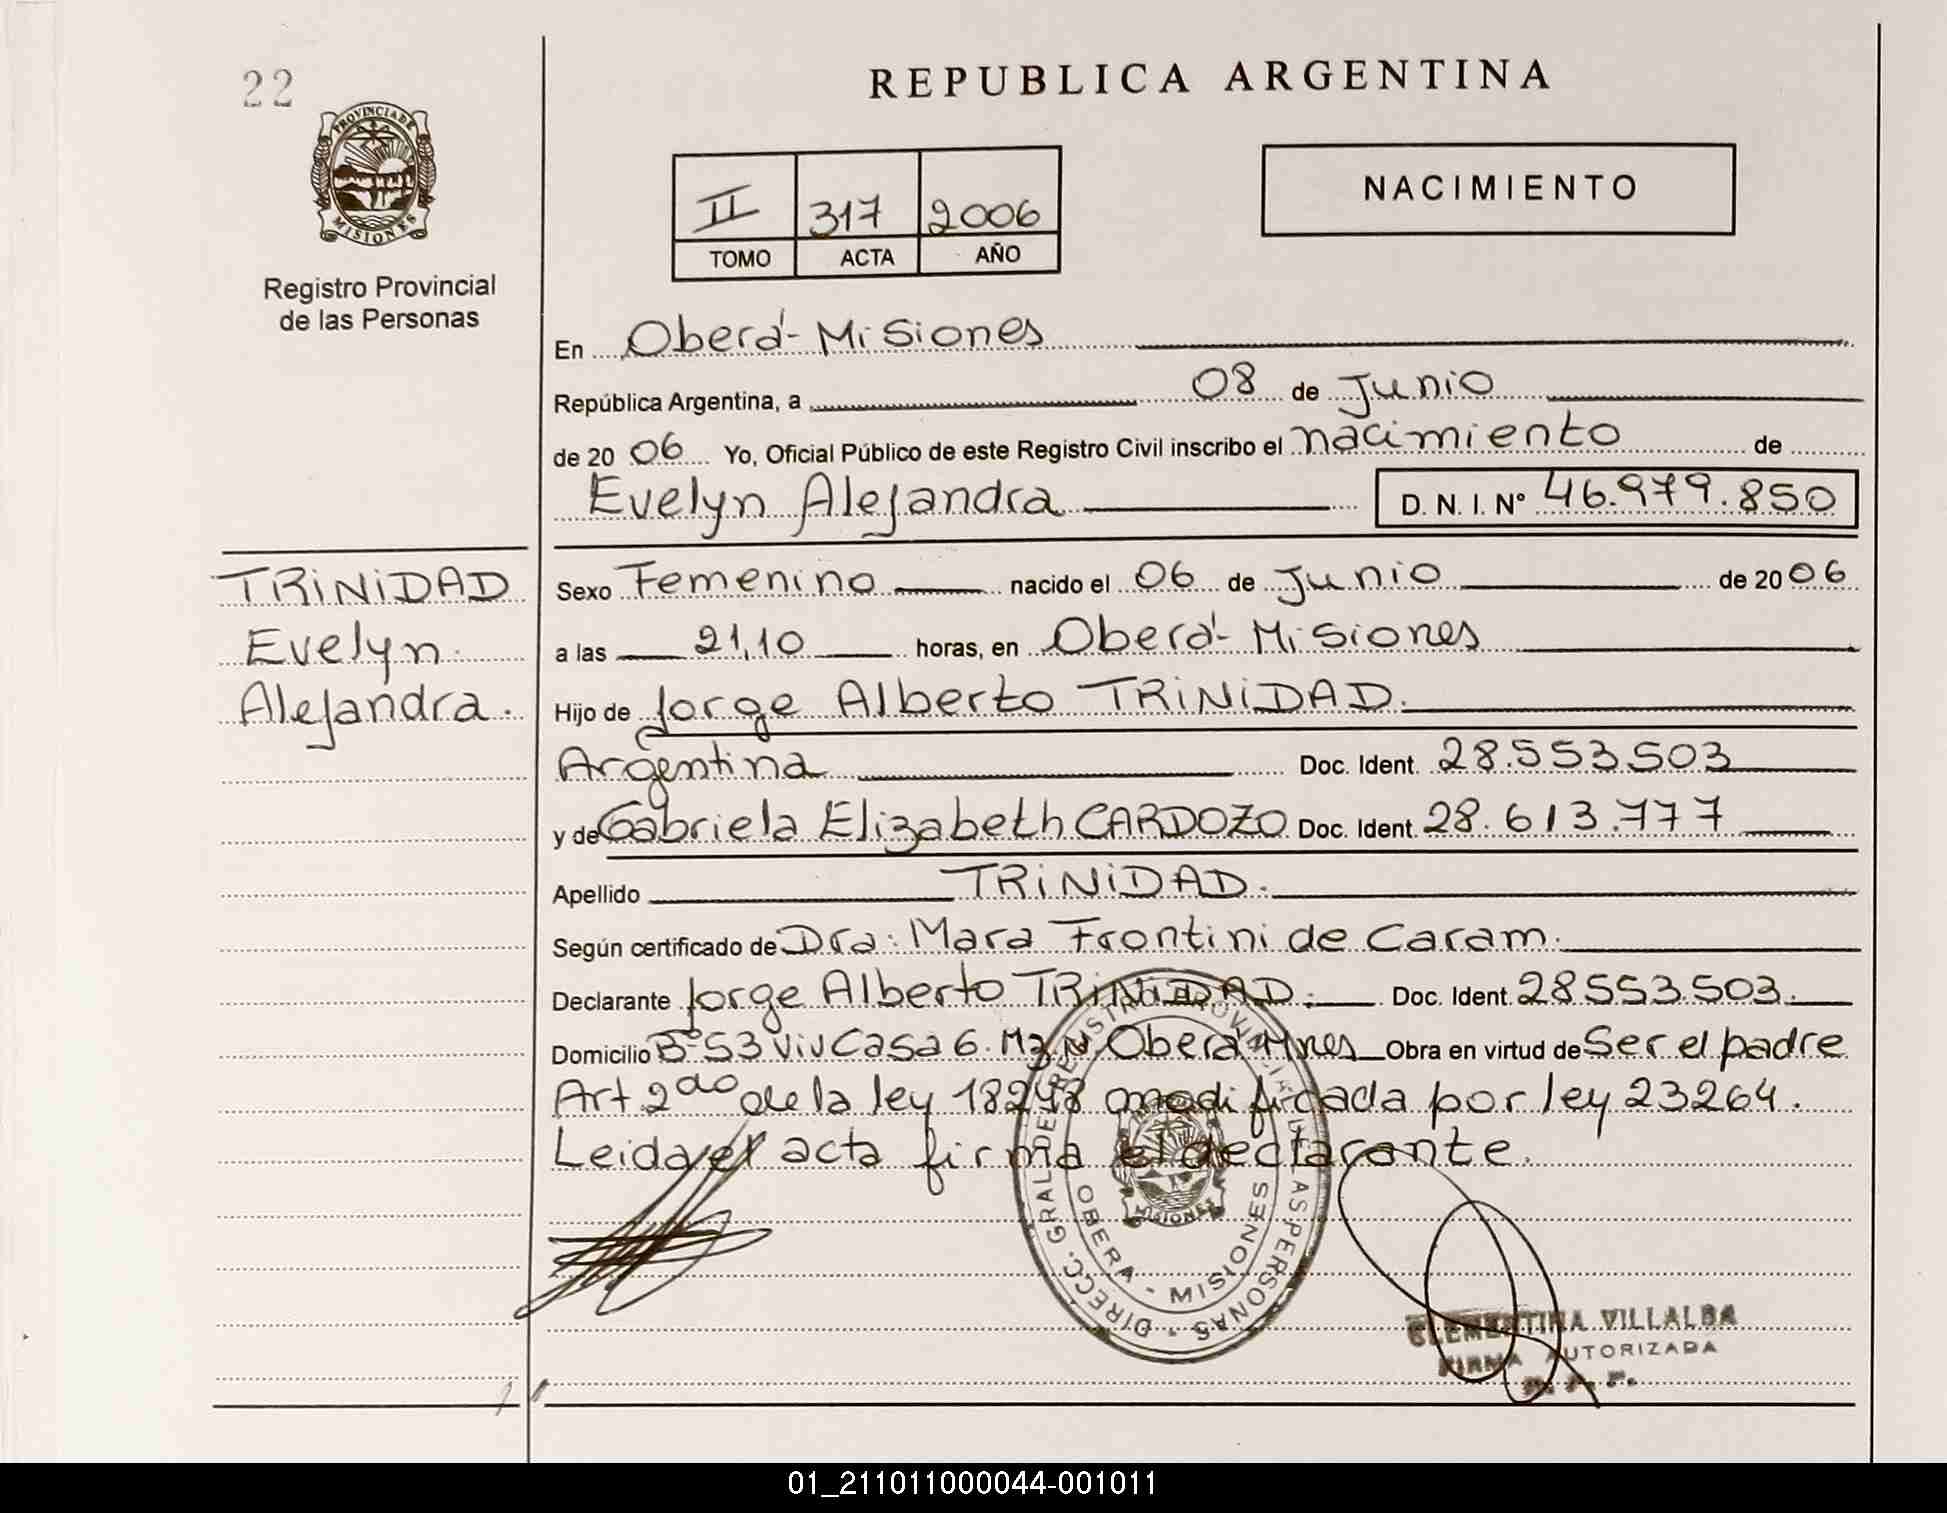 22
PROVINCIA DE
MISIONES
Registro Provincial
de las Personas
REPUBLICA ARGENTINA
II 317 2006
TOMO ACTA AÑO
NACIMIENTO
En Oberá- Misiones
República Argentina, a 08 de Junio
de 20 06 Yo, Oficial Público de este Registro Civil inscribo el nacimiento de
Evelyn Alejandra D. N. I. Nº 46.979.850
TRINIDAD
Evelyn
Alejandra.
Sexo Femenino nacido el 06 de Junio de 20 06
a las 21,10 horas, en Oberá- Misiones
Hijo de Jorge Alberto TRINIDAD.
Argentina Doc. Ident. 28.553.503
y de Gabriela Elizabeth CARDOZO Doc. Ident. 28.613.777
Apellido TRINIDAD.
Según certificado de Dra: Mara Frontini de Caram.
Declarante Jorge Alberto TRINIDAD. Doc. Ident. 28553.503.
Domicilio Bº 53 viv Casa 6. Mz N. Oberá Mnes Obra en virtud de Ser el padre
Art. 2do de la ley 18248 modificada por ley 23264.
Leida el acta firma el declarante.
DIRECC. GRAL DE REGISTRO PROVINCIAL DE LAS PERSONAS
MISIONES
OBERA - MISIONES
CLEMENTINA VILLALBA
FIRMA AUTORIZADA
01_211011000044-001011